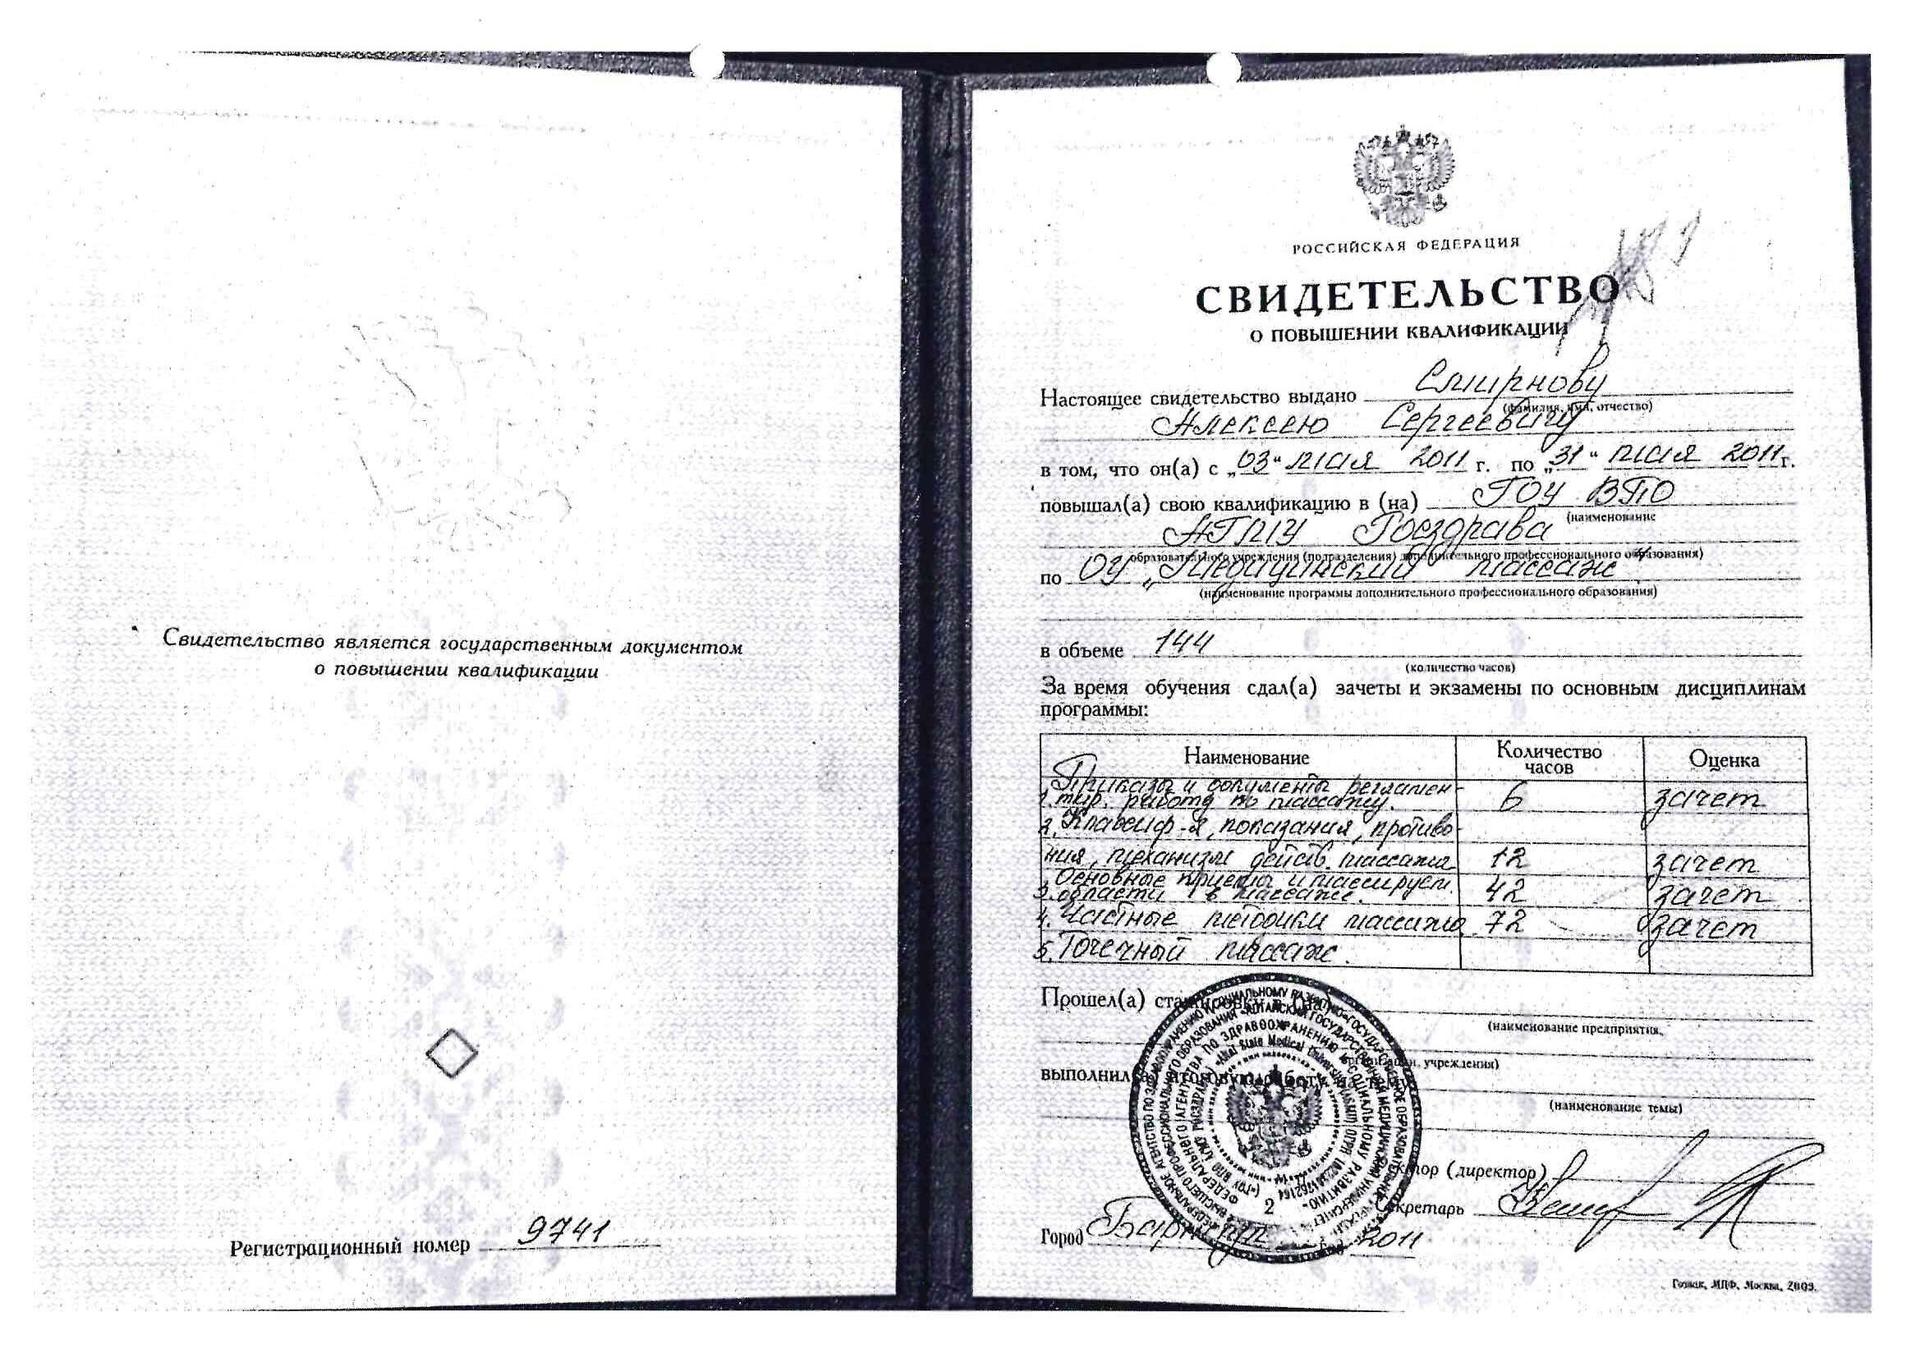 Свидетельство является государственным документом
о повышении квалификации
Регистрационный номер 9741
РОССИЙСКАЯ ФЕДЕРАЦИЯ
СВИДЕТЕЛЬСТВО
О ПОВЫШЕНИИ КВАЛИФИКАЦИИ
Настоящее свидетельство выдано Смирнову
(фамилия, имя, отчество)
Алексею Сергеевичу
в том, что он(а) с „03“ мая 2011 г. по „31“ мая 2011 г.
повышал(а) свою квалификацию в (на) ГОУ ВПО
(наименование
АГМУ Росздрава
образовательного учреждения (подразделения) дополнительного профессионального образования)
по ОУ „Медицинский массаж“
(наименование программы дополнительного профессионального образования)
в объеме 144
(количество часов)
За время обучения сдал(а) зачеты и экзамены по основным дисциплинам
программы:
Наименование Количество часов Оценка
1. Приказы и документы регламен-
тир. работу по массажу. 6 зачет
2. Классиф-я, показания, противо-
ния, механизм действ. массажа 12 зачет
3. Основные приемы и массируем.
области в массаже. 42 зачет
4. Частные методики массажа 72 зачет
5. Точечный массаж.
Прошел(а) стажировку в (на)
(наименование предприятия,
учреждения)
выполнил(а) итоговую работу на тему
(наименование темы)
(директор)
Секретарь
Город Барнаул 2011
Гознак, МПФ, Москва, 2009.